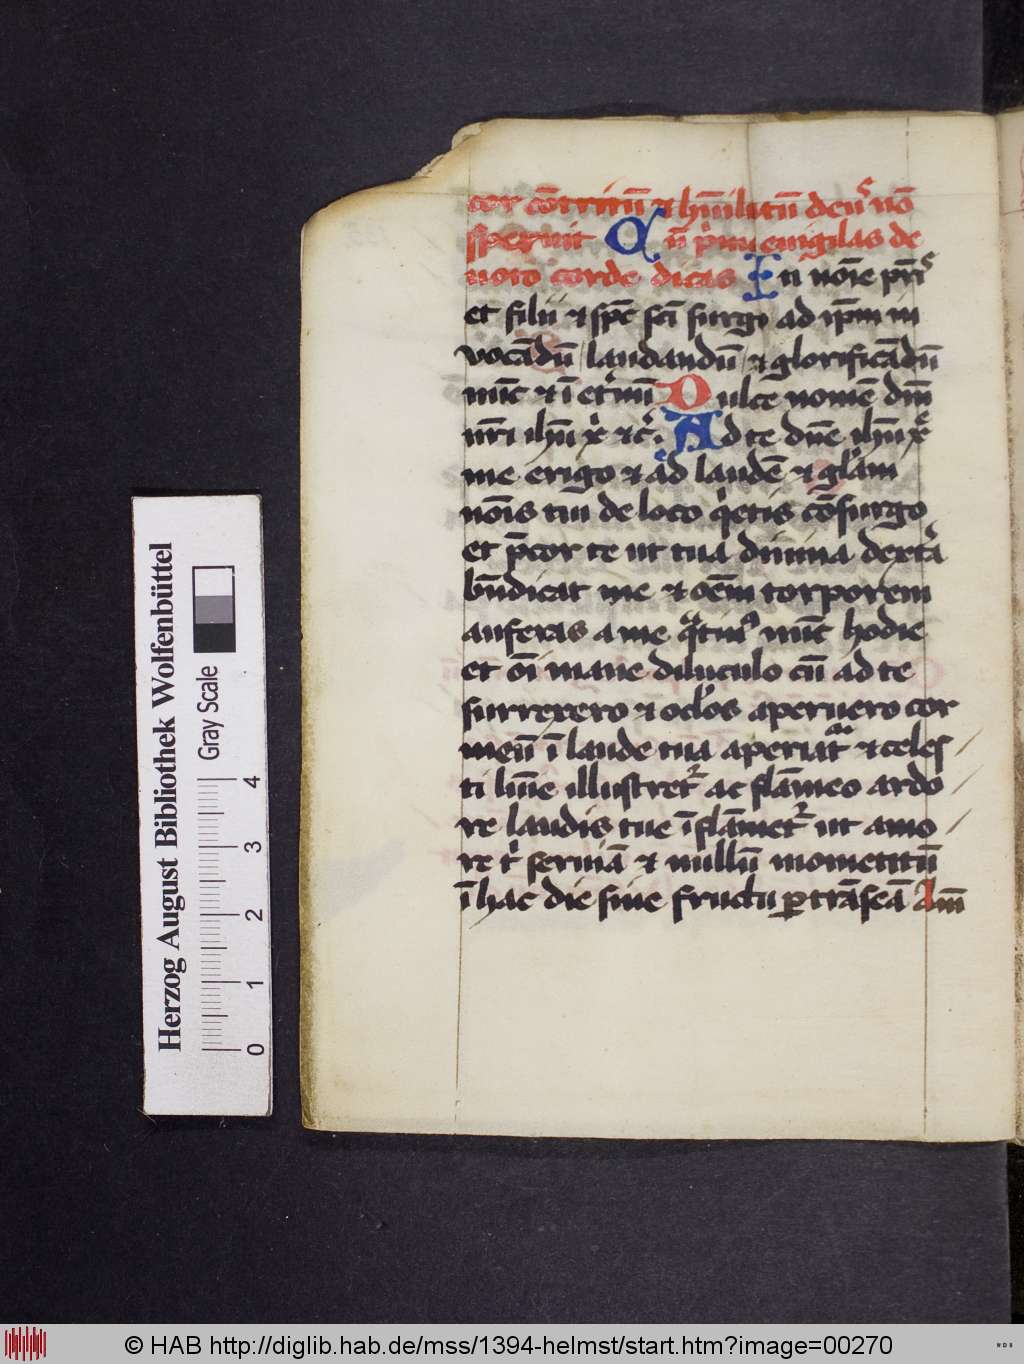 cor cōtritū et hūiliatū deus nō
spernit Qn̄ pͥmū euigilas de
uoto corde dicas In noīe prīs
et filii et spc̄ sc̄i surgo ad ip̄m in
vocādū laudandū et glorificādū
nūc et ī etͥnū Dulce nomē dn̄i
nr̄i ihū xͥ etc̄. Ad te dn̄e ihū xͥ
me erigo et ad laudē et glͥam
nōis tui de loco qͥetis cōsurgo
et p̄cor te ut tua diuina dextͣa
bn̄dicat me et oēm torporem
auferas a me qͣtinꝰ nūc hodie
et oī mane diluculo cū ad te
surrexero et oclͦos aperuero cor
meū ī laude tua aperiatͬ et celes
ti lūīe illustretͬ ac flāmeo ardo
re laudis tue īflāmetͬ ut amo
re tͥ seruiā et nullū momentū
ī hac die sine fructu ꝑtrāseā Am̄
Herzog August Bibliothek Wolfenbüttel
Gray Scale
0 1 2 3 4
© HAB http://diglib.hab.de/mss/1394-helmst/start.htm?image=00270